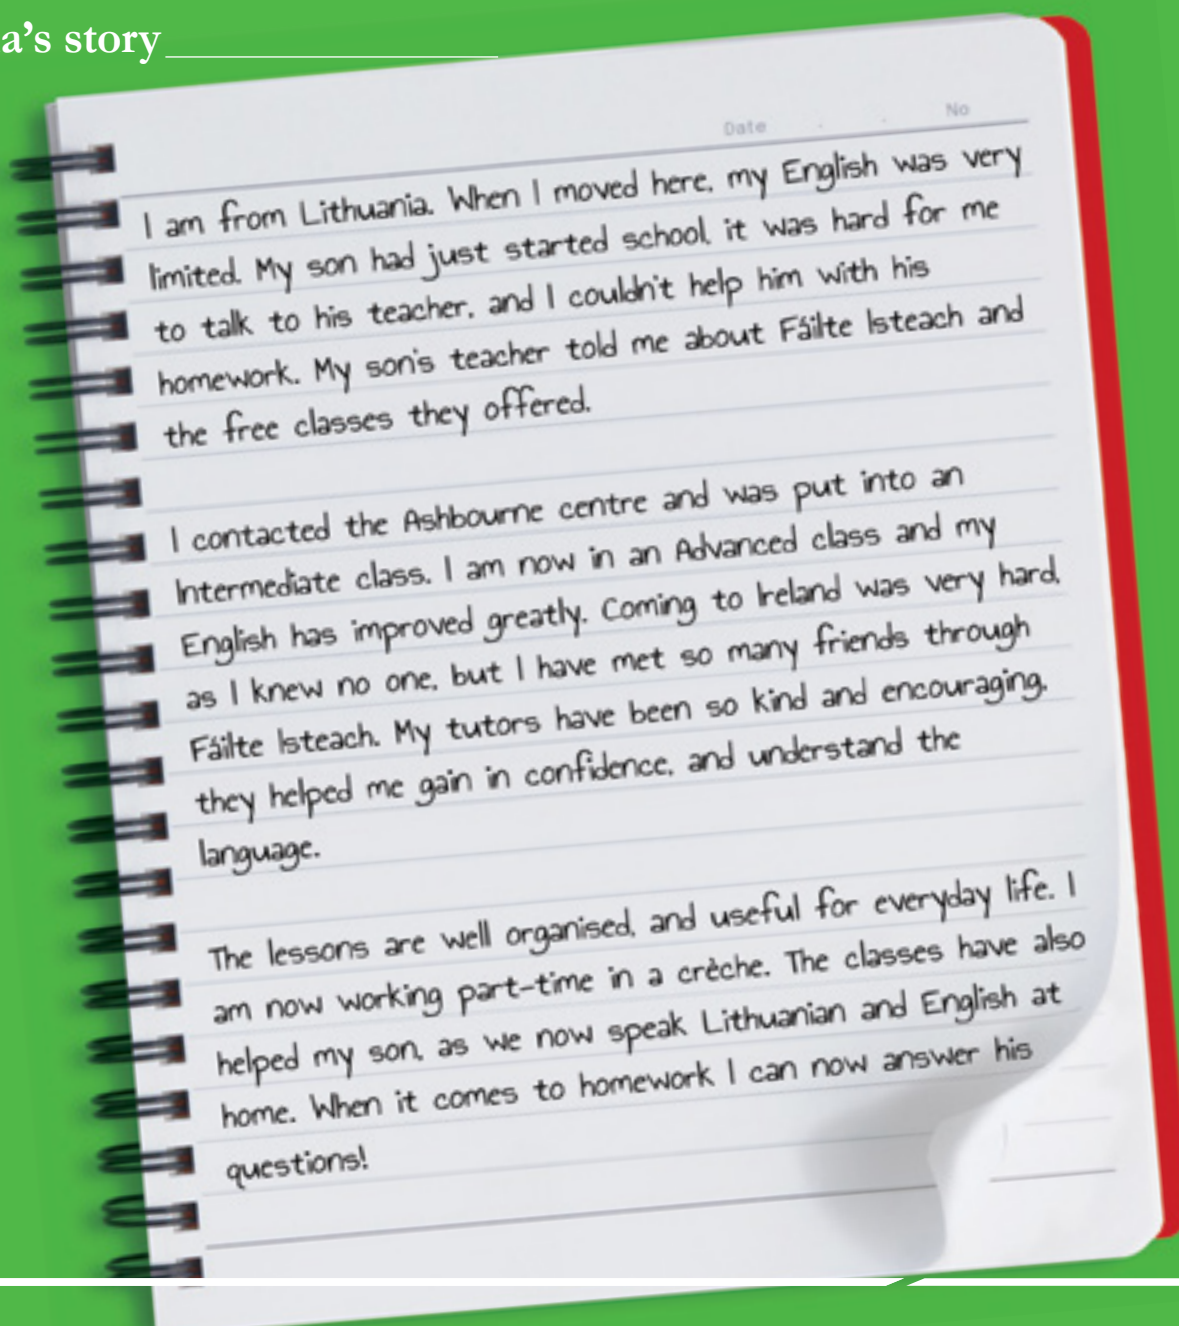 a’s story
Date
No
I am from Lithuania. When I moved here, my English was very
limited. My son had just started school, it was hard for me
to talk to his teacher, and I couldn't help him with his
homework. My son's teacher told me about Fáilte Isteach and
the free classes they offered.
I contacted the Ashbourne centre and was put into an
Intermediate class. I am now in an Advanced class and my
English has improved greatly. Coming to Ireland was very hard,
as I knew no one, but I have met so many friends through
Fáilte Isteach. My tutors have been so kind and encouraging,
they helped me gain in confidence, and understand the
language.
The lessons are well organised, and useful for everyday life. I
am now working part-time in a crèche. The classes have also
helped my son, as we now speak Lithuanian and English at
home. When it comes to homework I can now answer his
questions!